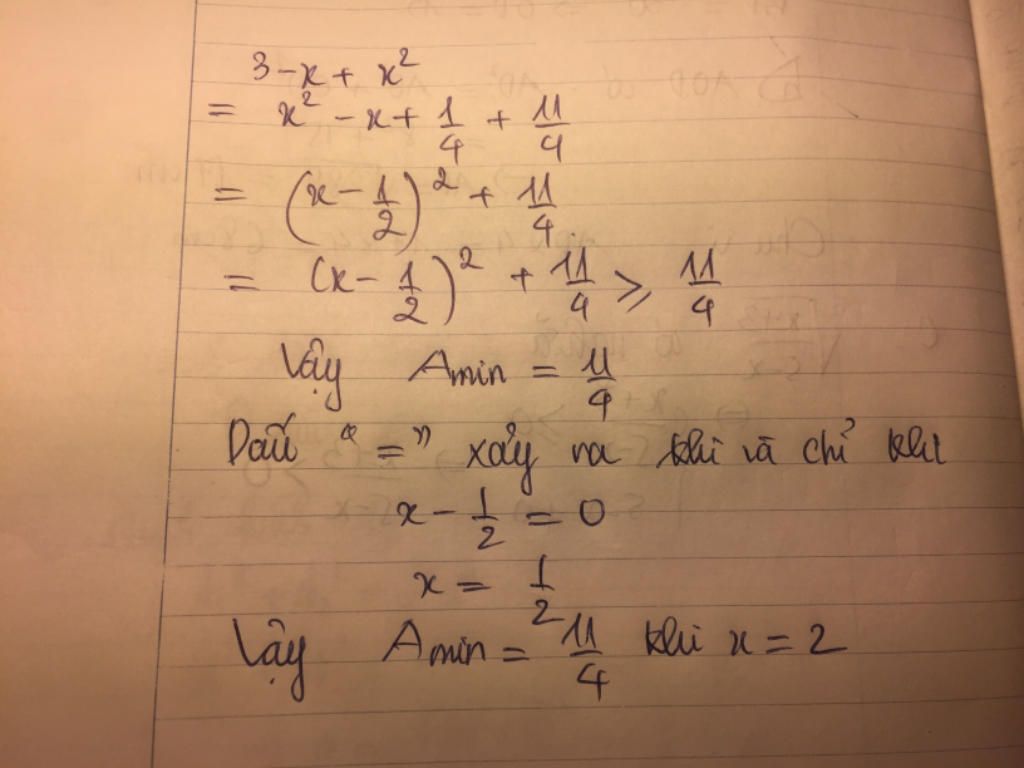 3 - x + x²
= x² - x + 1/4 + 11/4
= (x - 1/2)² + 11/4
= (x - 1/2)² + 11/4 ⩾ 11/4
Vậy Amin = 11/4
Dấu "=" xảy ra khi và chỉ khi
x - 1/2 = 0
x = 1/2
Vậy Amin = 11/4 khi x = 2